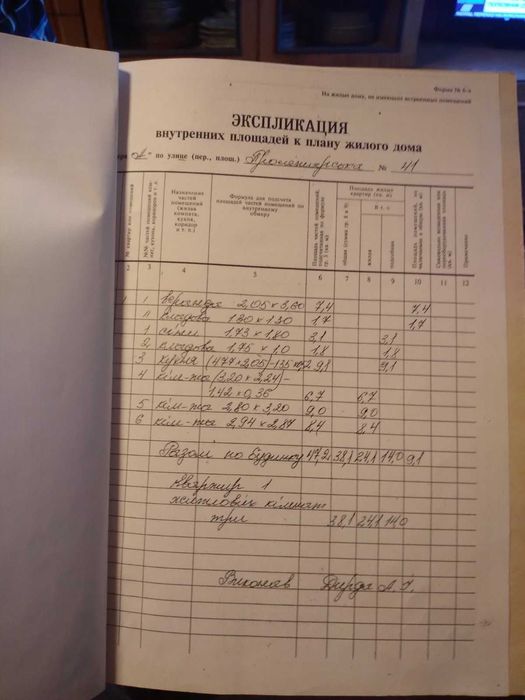 Форма № 6-а
На жилые дома, не имеющие встроенных помещений
ЭКСПЛИКАЦИЯ
внутренних площадей к плану жилого дома
"А" по улице (пер., площ.) № 41
№ квартир или помещений
№№ частей помещений
Назначение частей помещений (жилая комната, кухня, коридор и т. п.)
Формула для подсчета площадей частей помещений по внутреннему обмеру
Площадь частей помещений,
Площадь жилых квартир (кв. м)
общая (сумма гр. 8 и 9)
в т. ч.
жилая
подсобная
Примечание
2 3 4 5 6 7 8 9 10 11 12
1 I веранда 2,05 × 3,60 7,4 7,4
II кладова 1,30 × 1,30 1,7 1,7
1 сіни 1,73 × 1,80 3,1 3,1
2 кладова 1,75 × 1,0 1,8 1,8
3 кухня (4,77 × 2,05) 9,1 9,1
4 кім-та (3,20 × 2,24) -
1,42 × 0,35 6,7 6,7
5 кім-та 2,80 × 3,20 9,0 9,0
6 кім-та 2,94 × 2,87 8,4 8,4
Разом по будинку 47,2 38,1 24,1 14,0 9,1
Квартир 1
житлових кімнат
три 38,1 24,1 14,0
Виконав